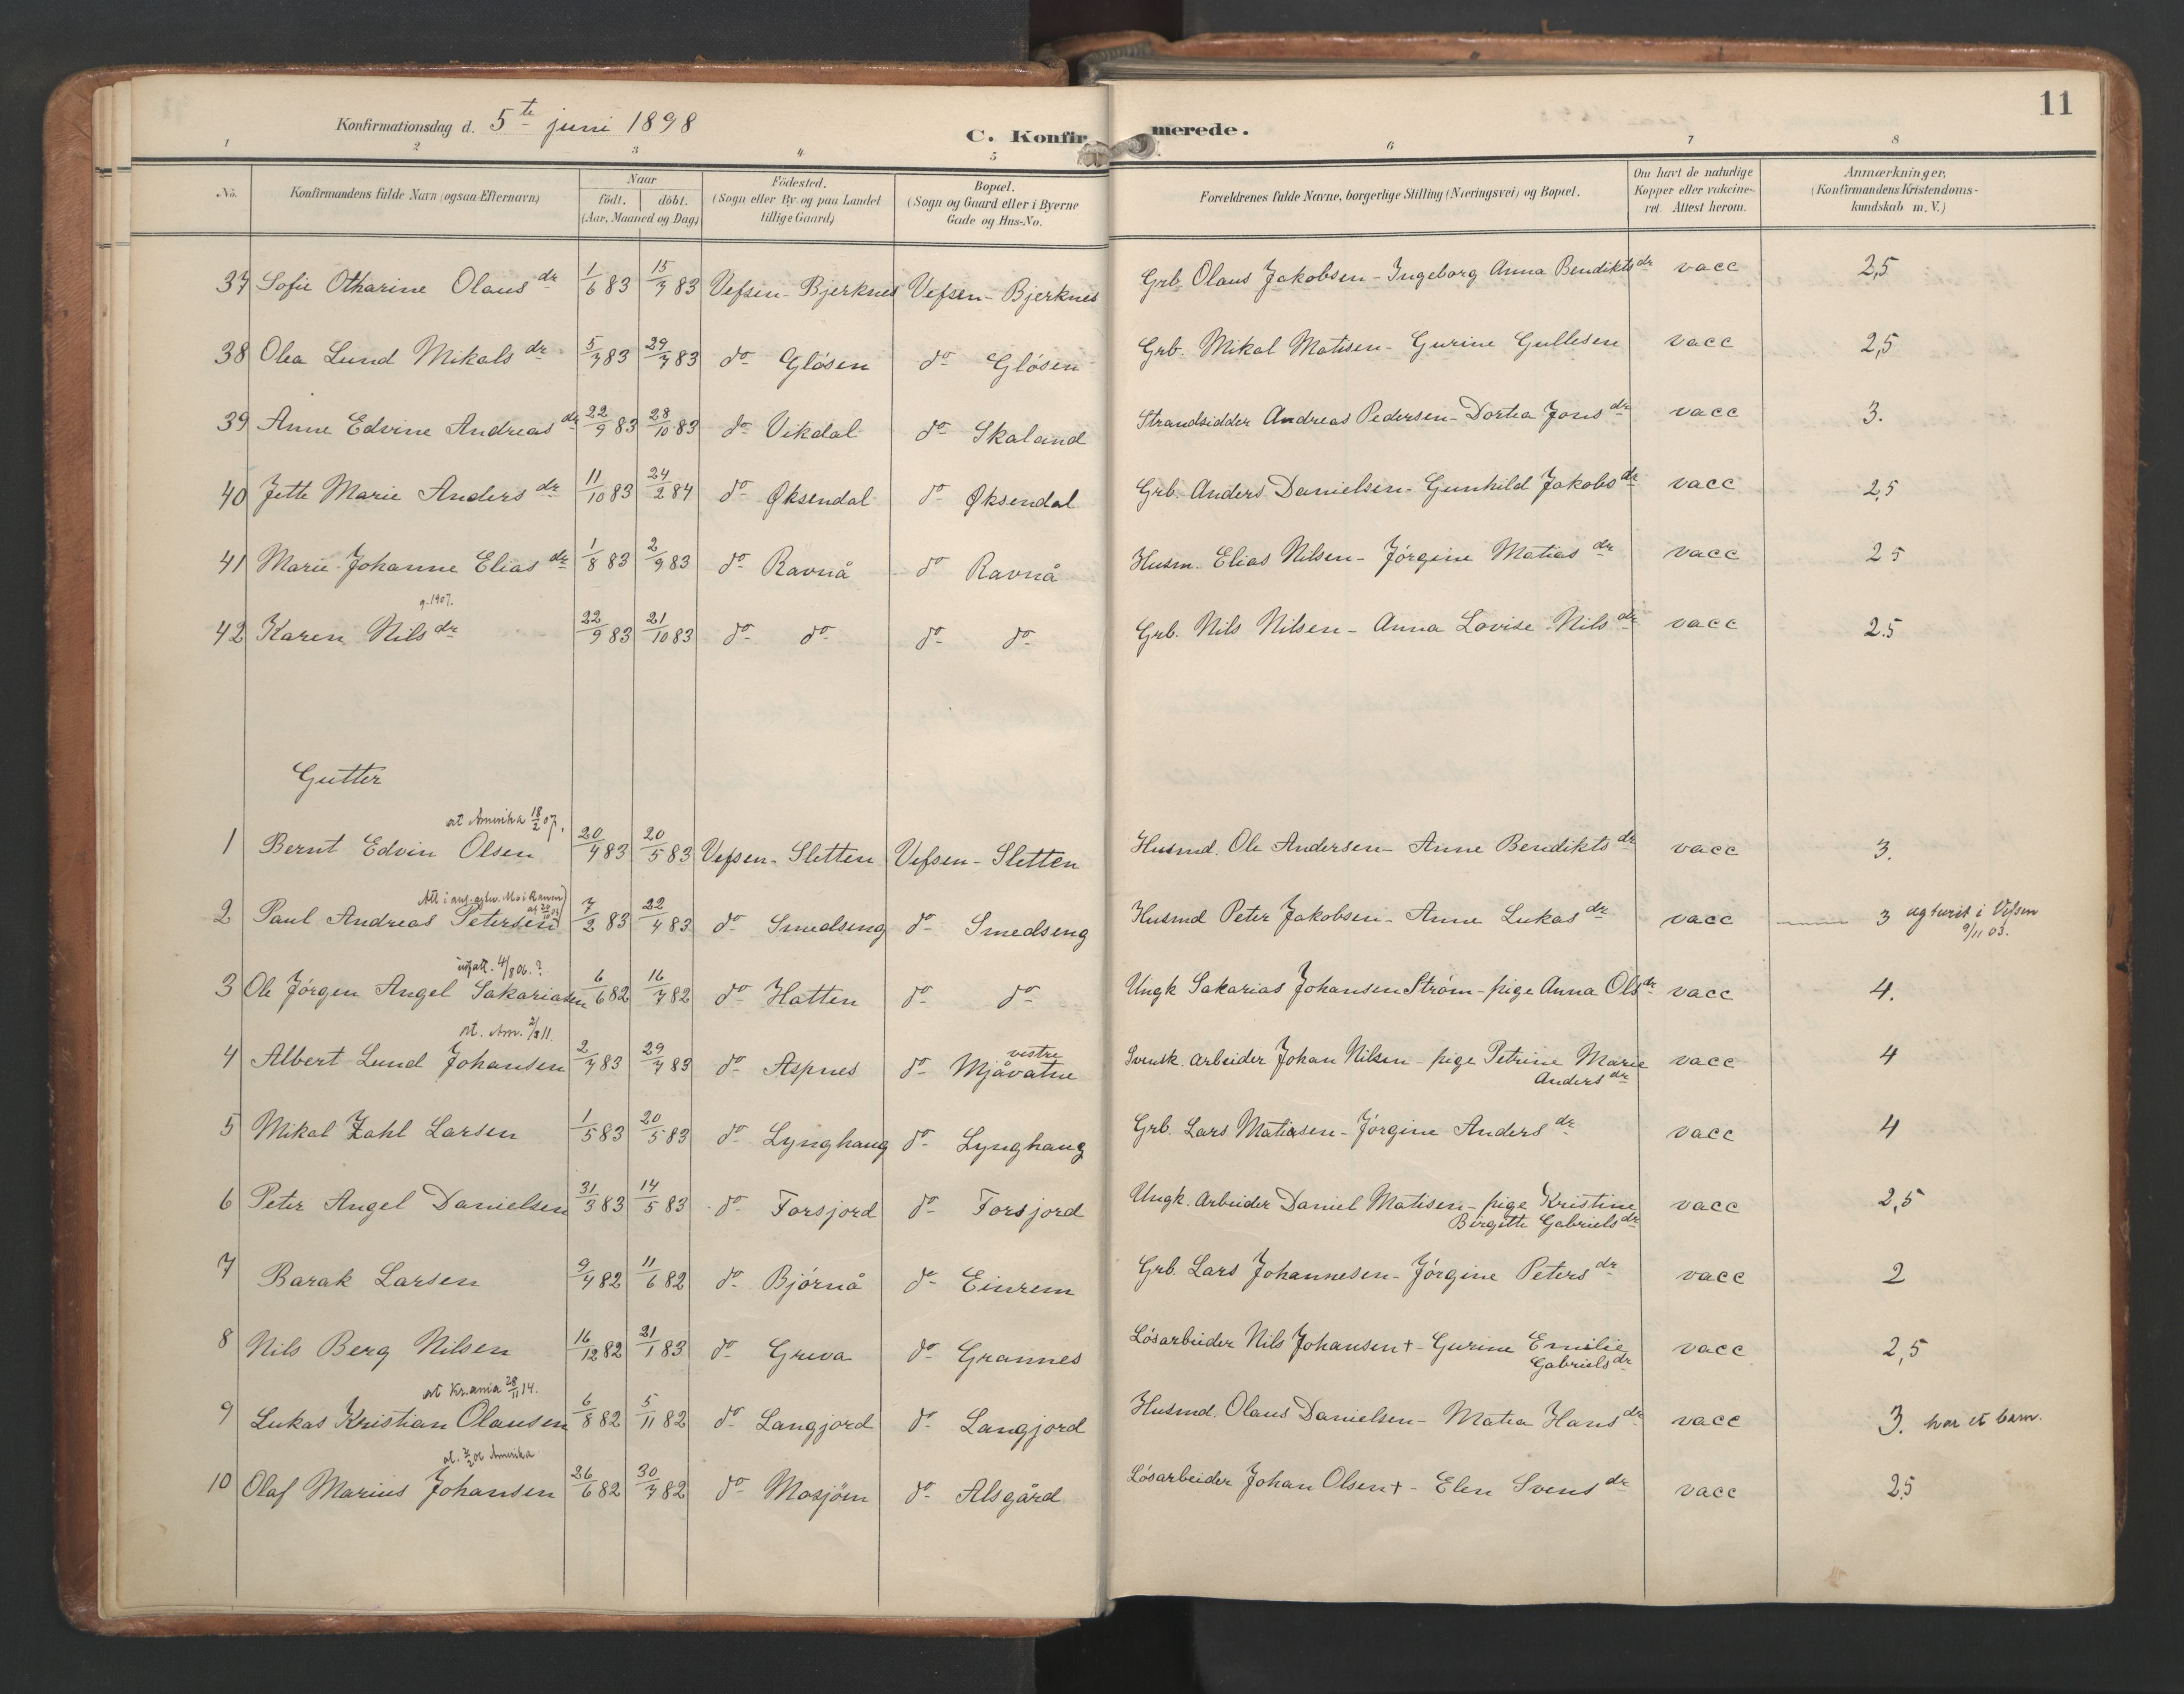 11
Konfirmationsdag d. 5te juni 1898
C. Konfirmerede.
1 2 3 4 5 6 7 8
No. Konfirmandens fulde Navn (ogsaa Efternavn) Naar födt. döbt. (Aar, Maaned og Dag) Födested. (Sogn eller By og paa Landet tillige Gaard) Bopæl. (Sogn og Gaard eller i Byerne Gade og Hus-No. Forældrenes fulde Navne, borgerlige Stilling (Næringsvei) og Bopæl. Om havt de naturlige Kopper eller vakcineret. Attest herom. Anmærkninger, (Konfirmandens Kristendomskundskab m. V.)
37 Sofie Otharine Olausdr 1/6 83 15/7 83 Vefsen - Bjerknes Vefsen - Bjerknes Grb. Olaus Jakobsen - Ingeborg Anna Bendiktsdr vacc 2,5
38 Olea Lund Mikalsdr 5/7 83 29/7 83 do Glösen do Glösen Grb. Mikal Matisen - Gurine Gullesen vacc 2,5
39 Anne Edvine Andreasdr 22/9 83 28/10 83 do Vikdal do Skaland Strandsidder Andreas Pedersen - Dortea Jonsdr vacc 3.
40 Jette Marie Andersdr 11/10 83 24/2 84 do Øksendal do Øksendal Grb. Anders Danielsen - Gunhild Jakobsdr vacc 2,5
41 Marie Johanne Eliasdr 1/8 83 2/9 83 do Ravnå do Ravnå Husm. Elias Nilsen - Jörgine Matiasdr vacc 2 5
g. 1907.
42 Karen Nilsdr 22/9 83 21/10 83 do do do do Grb. Nils Nilsen - Anna Lovise Nilsdr vacc 2.5
Gutter
at Amerika 18/2 07.
1 Bernt Edvin Olsen 20/4 83 20/5 83 Vefsen - Sletten Vefsen - Sletten Husmd. Ole Andersen - Anne Bendiktsdr vacc 3.
2 Paul Andreas Petersen 7/2 83 22/4 83 do Smedseng do Smedseng Husmd Peter Jakobsen - Anne Lukasdr vacc 3 i Vefsen
9/11 03.
utfatt. 4/8 06. ?
3 Ole Jörgen Angel Sakariasen 6/6 82 16/7 82 do Hatten do do Ungk Sakarias Johansen Strøm - pige Anna Olsdr vacc 4.
at. Am. 2/3 11.
4 Albert Lund Johansen 2/7 83 29/7 83 do Aspnes do vestre Mjåvatne Svensk. arbeider Johan Nilsen - pige Petrine Marie Andersdr vacc 4
5 Mikal Zahl Larsen 1/5 83 20/5 83 do Lynghaug do Lynghaug Grb. Lars Matiasen - Jörgine Andersdr vacc 4
6 Peter Angel Danielsen 31/3 83 14/5 83 do Forsjord do Forsjord Ungk. Arbeider Daniel Matisen - pige Kristine Birgitte Gabrielsdr vacc 2,5
7 Barak Larsen 9/4 82 11/6 82 do Björnå do Einrem Grb. Lars Johannesen - Jörgine Petersdr vacc 2
8 Nils Berg Nilsen 16/12 82 21/1 83 do Greva do Grannes Lösarbeider Nils Johansen + - Gurine Emilie Gabrielsdr vacc 2,5
at Kr.ania 28/11 14.
9 Lukas Kristian Olausen 6/8 82 5/11 82 do Langjord do Langjord Husmd. Olaus Danielsen - Matea Hansdr vacc 3. har et barn.
Amerika
10 Olaf Marius Johansen 26/6 82 30/7 82 do Mosjöen do Alsgård Lösarbeider Johan Olsen + - Elen Svensdr vacc 2.5